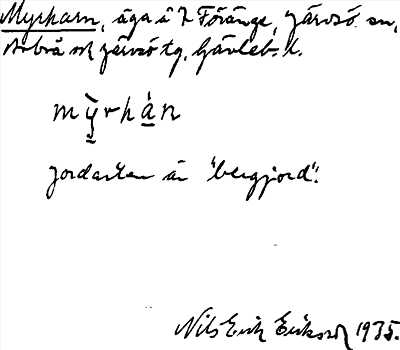 Myrharn, äga å 7 Föränge, Järvsö sn,
Arbrå ok Järvsö tg, Gävleb. l.
mỳrhán
Jordarten är "bergjord".
Nils Erik Eriksson 1935.